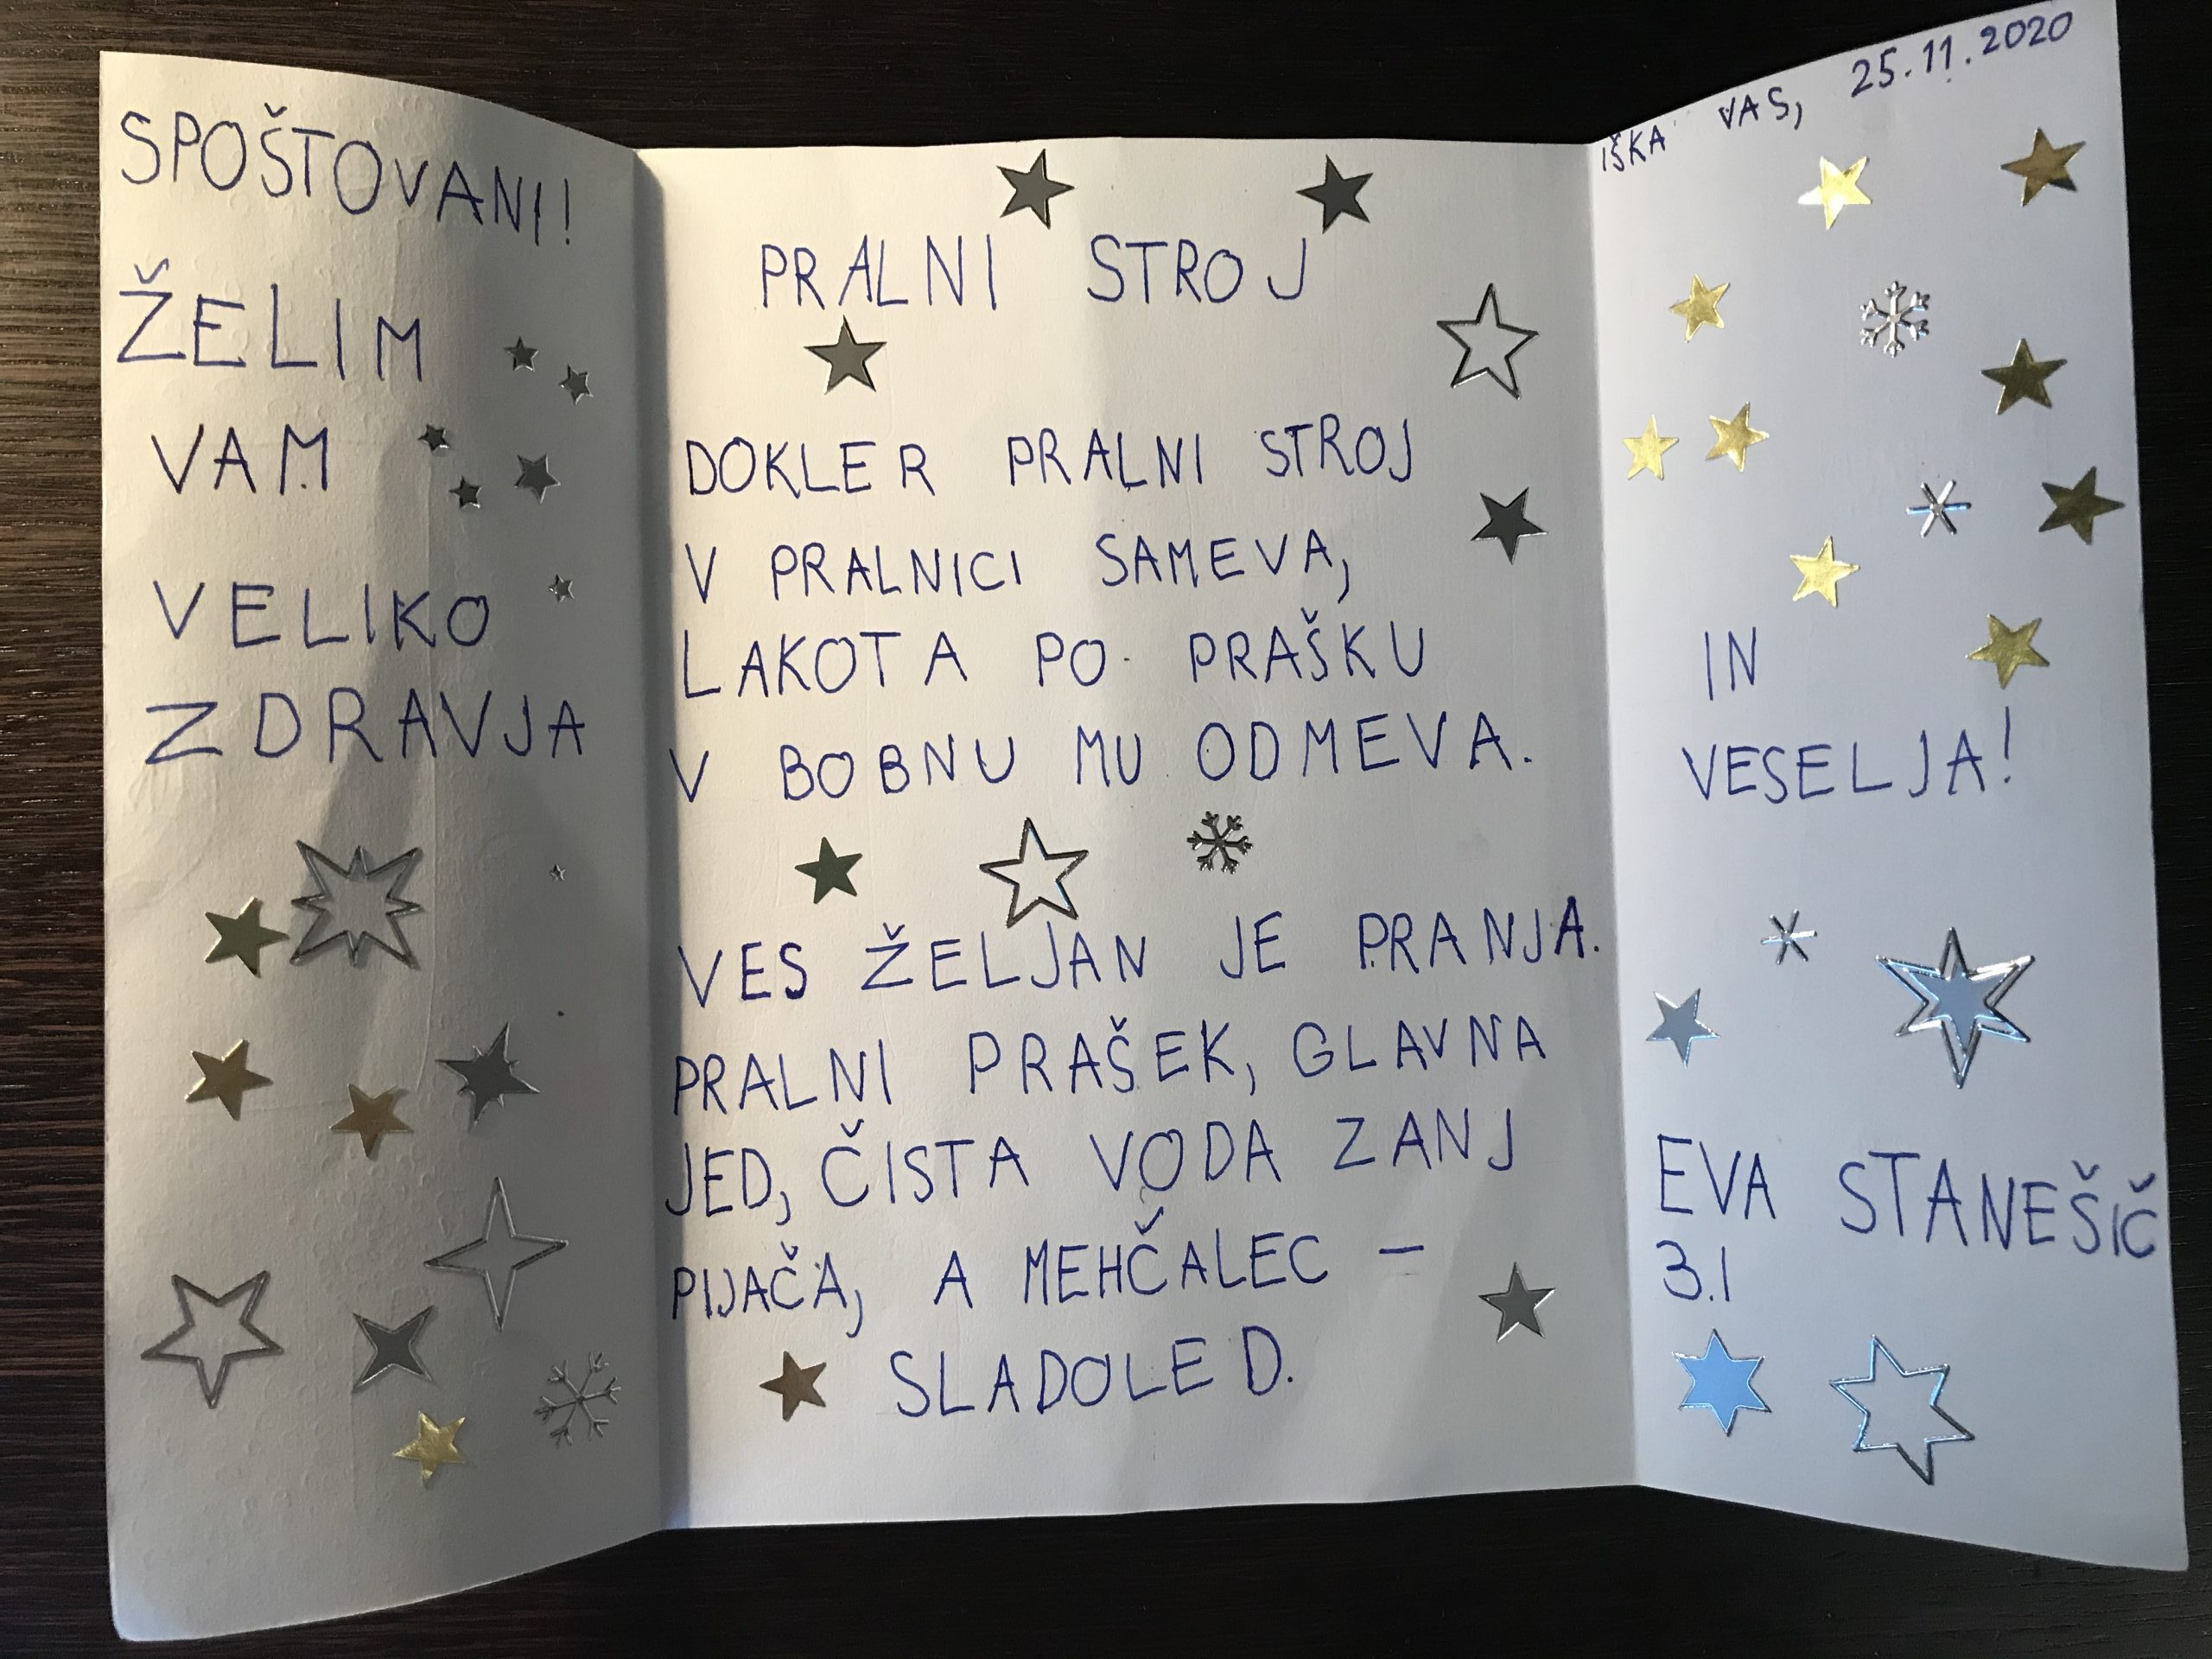 SPOŠTOVANI!
ŽELIM
VAM
VELIKO
ZDRAVJA
PRALNI STROJ
DOKLER PRALNI STROJ
V PRALNICI SAMEVA,
LAKOTA PO PRAŠKU
V BOBNU MU ODMEVA.
VES ŽELJAN JE PRANJA.
PRALNI PRAŠEK, GLAVNA
JED, ČISTA VODA ZANJ
PIJAČA, A MEHČALEC –
SLADOLED.
IŠKA VAS, 25.11.2020
IN
VESELJA!
EVA STANEŠIČ
3.I